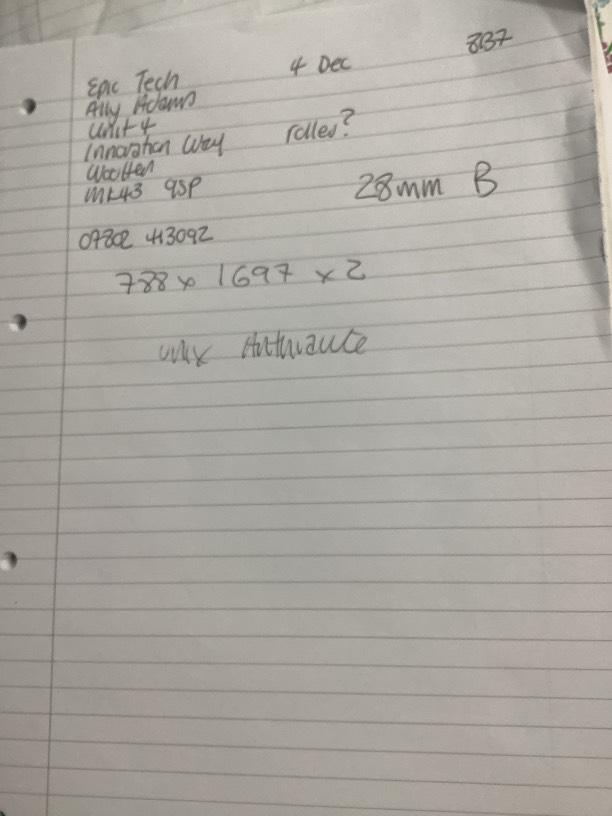 8137
4 Dec
Epic Tech
Ally Adams
Unit 4
Innovation Way
rolles?
Wootten
MK43 9SP
28mm B
07802 413092
788 x 1697 x 2
Anthracite